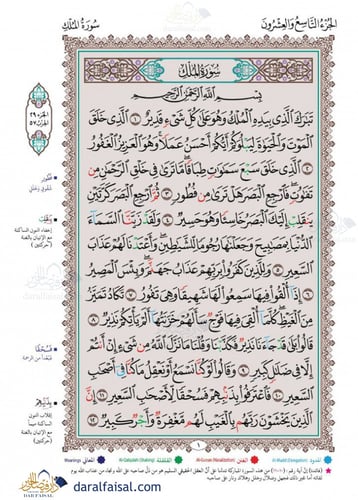 الجزء التاسع والعشرون
سورة الملك
الجزء ٢٩
الحزب ٥٧
سورة الملك
بسم الله الرحمن الرحيم
تبارك الذي بيده الملك وهو على كل شيء قدير ١ الذي خلق
الموت والحياة ليبلوكم أيكم أحسن عملا وهو العزيز الغفور
٢ الذي خلق سبع سماوات طباقا ما ترى في خلق الرحمن من
تفاوت فارجع البصر هل ترى من فطور ٣ ثم ارجع البصر كرتين
ينقلب إليك البصر خاسئا وهو حسير ٤ ولقد زينا السماء
الدنيا بمصابيح وجعلناها رجوما للشياطين وأعتدنا لهم عذاب
السعير ٥ وللذين كفروا بربهم عذاب جهنم وبئس المصير
٦ إذا ألقوا فيها سمعوا لها شهيقا وهي تفور ٧ تكاد تميز
من الغيظ كلما ألقي فيها فوج سألهم خزنتها ألم يأتكم نذير ٨
قالوا بلى قد جاءنا نذير فكذبنا وقلنا ما نزل الله من شيء إن أنتم
إلا في ضلال كبير ٩ وقالوا لو كنا نسمع أو نعقل ما كنا في أصحاب
السعير ١٠ فاعترفوا بذنبهم فسحقا لأصحاب السعير ١١ إن
الذين يخشون ربهم بالغيب لهم مغفرة وأجر كبير ١٢
فطور
ينقلب
إخفاء النون الساكنة
مع الإتيان بالغنة
فسحقا
بذنبهم
١
Meanings المعاني
daralfaisal.com
DAR ALFAISAL
daralfaisal.com